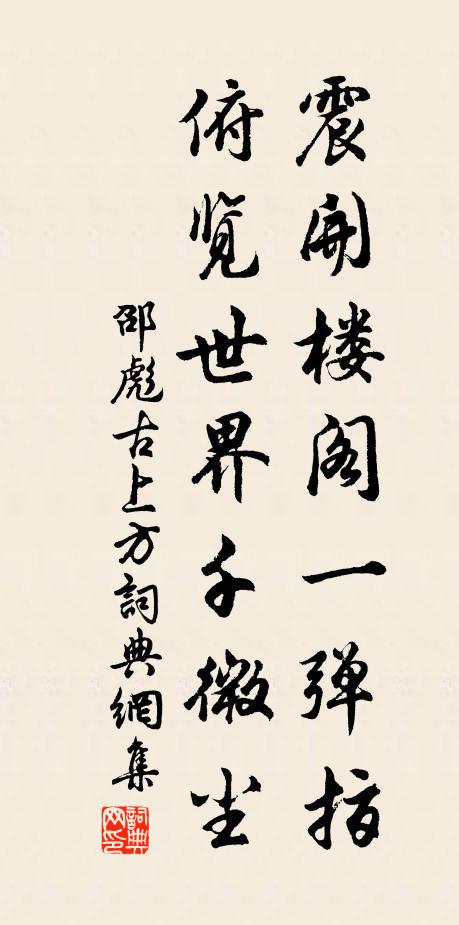 震開楼阁一弹指
俯览世界千微尘
邵彪古上方詞典網集
詞典網印